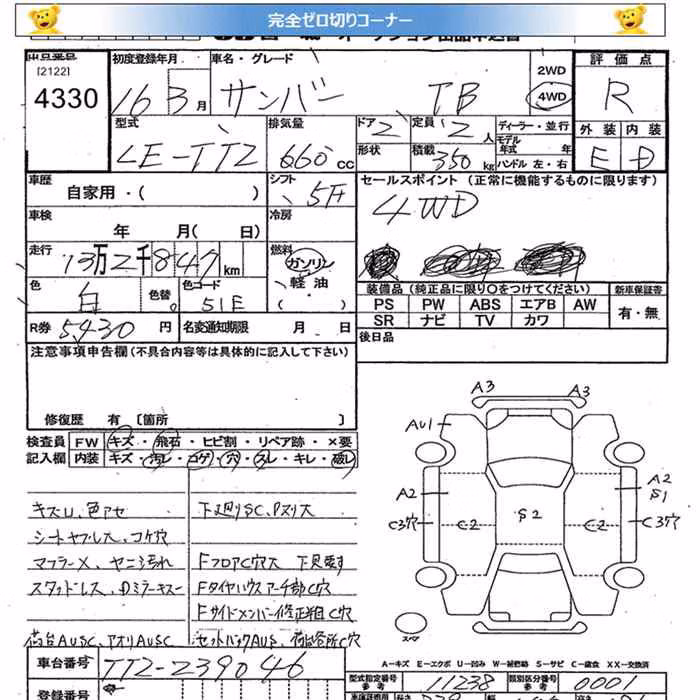 完全ゼロ切りコーナー
[2122]
4330
初度登録年月
16 年 3 月
車名・グレード
サンバー TB
2WD
4WD
評価点
R
型式
LE-TT2
排気量
660 CC
ドア 2
定員 2 人
形状
積載 350 kg
ディーラー・並行
モデル年式 年
ハンドル 左・右
外装 内装
E D
車歴
自家用・( )
シフト 5F
セールスポイント (正常に機能するものに限ります)
4WD
車検
年 月( 日)
冷房
走行
13万2千847km
燃料
ガソリン
軽油
・( )
色
白
色替
色コード
51E
装備品(純正品に限り〇をつけてください)
新車保証書
PS PW ABS エアB AW
SR ナビ TV カワ
有・無
R券 5,430 円
名変通知期限 月 日
後日品
注意事項申告欄(不具合内容等は具体的に記入して下さい)
修復歴 有 [箇所 ]
検査員記入欄
FW キズ・飛石・ヒビ割・リペア跡・×要
内装 キズ・汚レ・コゲ・穴・スレ・キレ・破レ
キズU、色アセ
下廻りSC、Pスリ大
シートヤブレス、コゲ穴
マフラーX、ヤニ汚れ
FフロアC穴大
スタッドレス、Dミラーキズ
Fタイヤハウスアーチ部C穴
Fサイドメンバー修正期C穴
荷台AUSC、アオリAUSC
セットバックAUS、荷台各所C穴
A3
A3
AU1
A2
A2
S1
C3穴
C2
S2
C2
C3穴
スペア
A－キズ E－エクボ U－凹み W－補修跡 S－サビ C－腐食 XX－交換済
車台番号
TT2-239046
型式指定番号 参考
11238
類別区分番号 参考
0001
登録番号